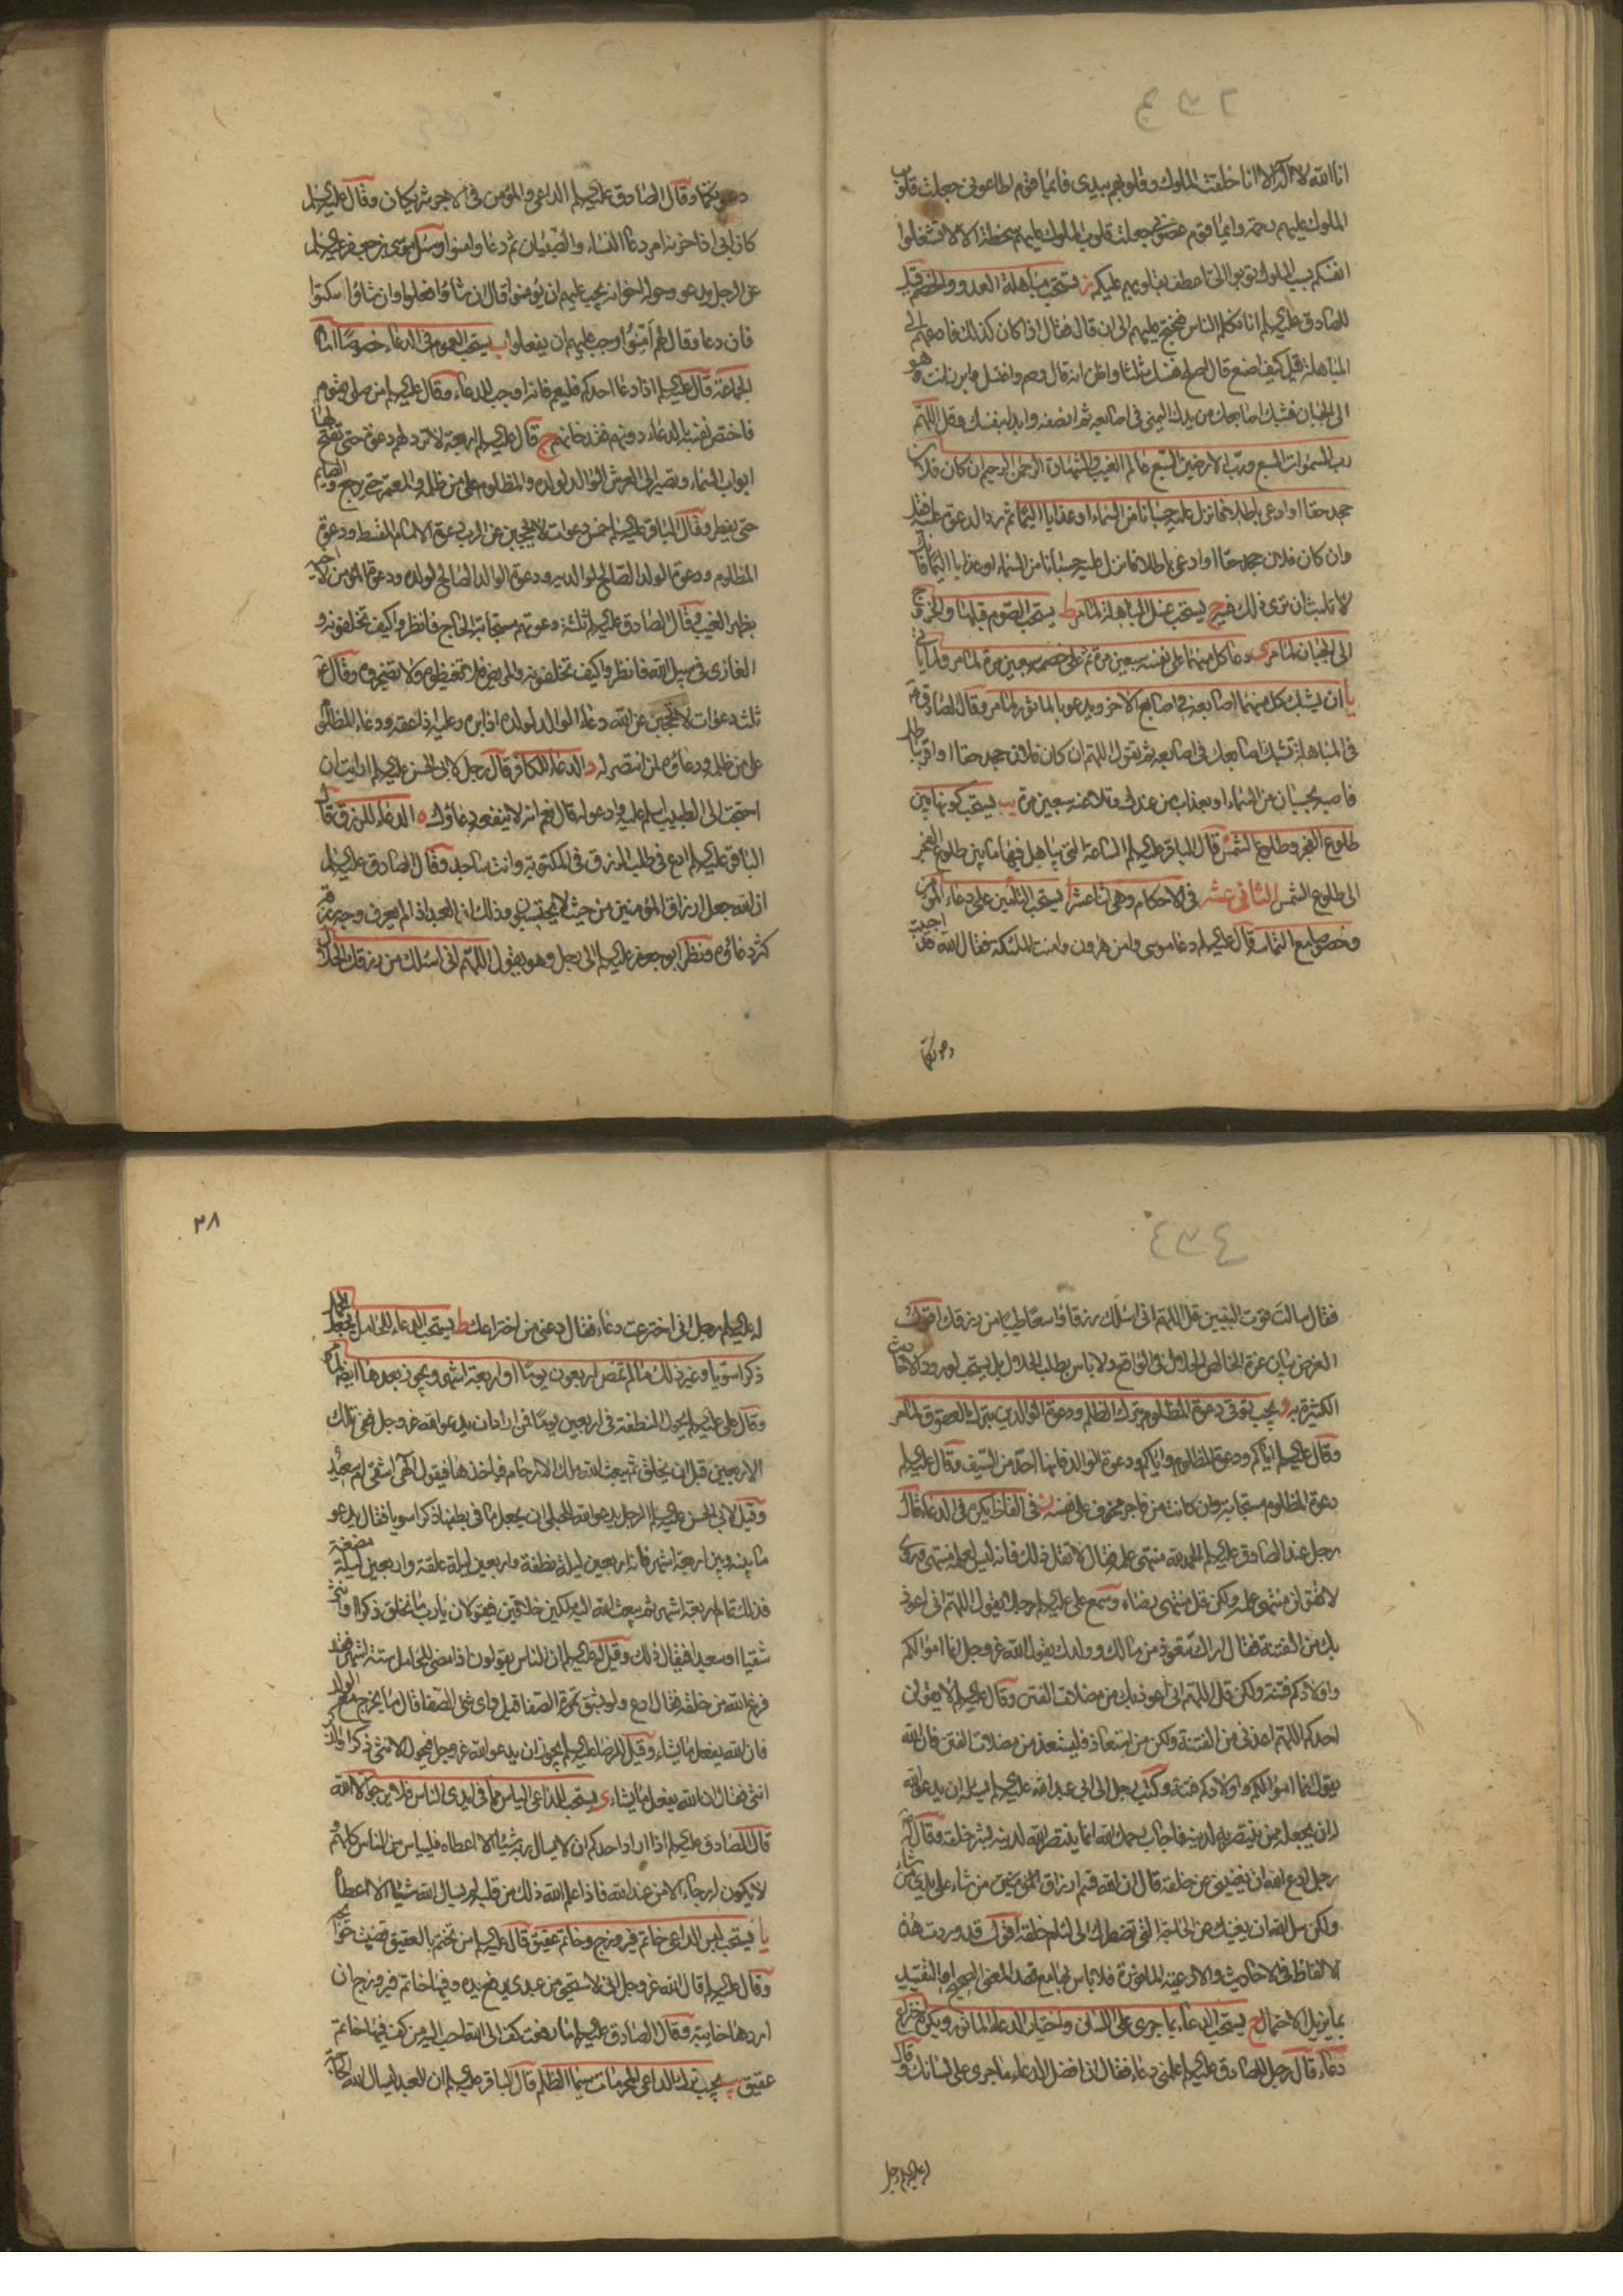 انا الله لا اله الا انا خلقت الملوك وقلوبهم بيدى فايما قوم اطاعونى جعلت قلوب
الملوك عليهم رحمة وايما قوم عصونى جعلت قلوب الملوك عليهم سخطة الا لا تشغلوا
انفسكم بسب الملوك توبوا الى اعطف بقلوبهم عليكم ز يستحب مباهلة العدو والخصم قيل
للصادق عليه السلم انا نكلم الناس فنحتج عليهم الى ان قال فقال اذا كان كذلك فادعهم الى
المباهلة قيل كيف اصنع قال اصلح نفسك ثلثا واظن انه قال وصم واغتسل وابرز انت وهو
الى الجبان فشبك اصابعك من يدك اليمنى فى اصابعه ثم انصفه وابدا بنفسك وقل اللهم
رب السموات السبع ورب الارضين السبع عالم الغيب والشهادة الرحمن الرحيم ان كان فلان
جحد حقا او ادعى باطلا فانزل عليه حسبانا من السماء او عذابا اليما ثم رد الدعوة عليه فقل
وان كان فلان جحد حقا او ادعى باطلا فانزل عليه حسبانا من السماء او عذابا اليما فانك
لا تلبث ان ترى ذلك فيه ح يستحب عند المباهلة لما مر ط يستحب الصوم قبلها والخروج
الى الجبان لما مر ى دعا كل منهما على نفسه سبعين مرة ثم على خصمه سبعين مرة لما مر ولما ياتى
يا ان يشبك كل منهما اصابعه فى اصابع الاخر ويدعو بالماثور لما مر وقال الصادق ع
فى المباهلة تشبك اصابعك فى اصابعه ثم تقول اللهم ان كان فلان جحد حقا او اقر بباطل
فاصبه بحسبان من السماء او بعذاب من عندك وتلاعنه سبعين مرة يب يستحب كونها بين
طلوع الفجر وطلوع الشمس قال الباقر عليه السلم الساعة التى يباهل فيها ما بين طلوع الفجر
الى طلوع الشمس الثانى عشر فى الاحكام وهى اثنا عشر ا يستحب التامين على دعاء المؤمن
وخصوصا مع التماسه قال عليه السلم دعا موسى وامن هرون وامنت الملئكة فقال الله قد اجيبت
دعوتكما
دعوتكما وقال الصادق عليه السلم الداعى والمؤمن فى الاجر شريكان وقال عليه السلم
كان ابى اذا حزنه امر دعا النساء والصبيان ثم دعا وامنوا وسئل موسى بن جعفر عليه السلم
عن الرجل يدعو وحوله اخوانه يجب عليهم ان يؤمنوا قال ان شاؤا فعلوا وان شاؤا سكتوا
فان دعا وقال لهم امنوا وجب عليهم ان يفعلوا ب يستحب العموم فى الدعاء خصوصا امام
الجماعة قال عليه السلم اذا دعا احدكم فليعم فانه اوجب للدعاء وقال عليه السلم من صلى بقوم
فاختص نفسه بالدعاء دونهم فقد خانهم ج قال عليه السلم اربعة لا ترد لهم دعوة حتى تفتح لها
ابواب السماء وتصير الى العرش الوالد لولده والمظلوم على من ظلمه والمعتمر حتى يرجع والصايم
حتى يفطر وقال الباقر عليه السلم خمس دعوات لا يحجبن عن الرب دعوة الامام المقسط ودعوة
المظلوم ودعوة الولد الصالح لوالديه ودعوة الوالد الصالح لولده ودعوة المؤمن لاخيه
بظهر الغيب وقال الصادق عليه السلم ثلثة دعوتهم مستجابة الحاج فانظروا كيف تخلفونه و
الغازى فى سبيل الله فانظروا كيف تخلفونه والمريض فلا تغيظوه ولا تضجروه وقال ع
ثلث دعوات لا يحجبن عن الله دعاء الوالد لولده اذا بره وعليه اذا عقه ودعاء المظلوم
على من ظلمه ودعاؤه لمن انتصر له د الدعاء للكافر قال رجل لابى الحسن عليه السلم ارايت ان
احتجت الى الطبيب اسلم عليه وادعو له قال نعم انه لا ينفعه دعاؤك ه الدعاء للرزق قال
الباقر عليه السلم ادع فى طلب الرزق فى المكتوبة وانت ساجد وقال الصادق عليه السلم
ان الله جعل ارزاق المؤمنين من حيث لا يحتسبون وذلك ان العبد اذا لم يعرف وجه رزقه
كثر دعاؤه ونظر ابو جعفر عليه السلم الى رجل وهو يقول اللهم انى اسئلك من رزقك الحلال
فقال سالت قوت النبيين قل اللهم انى اسئلك رزقا واسعا طيبا من رزقك اقول
الغرض بيان عزة الخالص الحلال فى الواقع ولا باس بطلب الحلال بل يستحب لورود الاحاديث
الكثيرة به و يجب توقى دعوة المظلوم بترك الظلم ودعوة الوالدين بترك العقوق لما مر
وقال عليه السلم اياكم ودعوة المظلوم واياكم ودعوة الوالد فانها احد من السيف وقال عليه السلم
دعوة المظلوم مستجابة وان كانت من فاجر مخوف على نفسه ز فى الفاظ يكره فى الدعاء قال
رجل عند الصادق عليه السلم الحمد لله منتهى علمه فقال لا تقل ذلك فانه ليس لعلمه منتهى وروى
لا تقولن منتهى علمه ولكن قل منتهى رضاه وسمع على عليه السلم رجلا يقول اللهم انى اعوذ
بك من الفتنة فقال اراك تتعوذ من مالك وولدك يقول الله عز وجل انما اموالكم
واولادكم فتنة ولكن قل اللهم انى اعوذ بك من مضلات الفتن وقال عليه السلم لا يقولن
احدكم اللهم اعذنى من الفتنة ولكن من استعاذ فليستعذ من مضلات الفتن فان الله
يقول انما اموالكم واولادكم فتنة وكتب رجل الى ابى عبد الله عليه السلم يساله ان يدعو الله
له ان يجعله ممن ينتصر به لدينه فاجاب رحمك الله انما ينتصر الله لدينه بشر خلقه وقال له
رجل ادع الله ان يغنينى عن خلقه قال ان الله قسم ارزاق المؤمنين من شاء على يدى من شاء
ولكن سل الله ان يغنيك عن الحاجة التى تضطرك الى لئام خلقه اقول قد وردت هذه
الالفاظ فى الاحاديث والادعية الماثورة فلا باس بها مع قصد المعنى الصحيح او التقييد
بما يزيل الاحتمال ح يستحب الدعاء بما جرى على اللسان واختيار الدعاء الماثور ويكره اختراع
دعاء قال رجل للصادق عليه السلم علمنى دعاء فقال ان افضل الدعاء ما جرى على لسانك وقال
له عليه السلم رجل
٣٨
له عليه السلم رجل انى اخترعت دعاء فقال دعنى من اختراعك ط يستحب الدعاء للحامل بجعل الحمل
ذكرا سويا وغير ذلك ما لم تمض اربعون يوما او اربعة اشهر ويجوز بعدها ايضا لما مر
وقال على عليه السلم تحول النطفة فى اربعين يوما فمن اراد ان يدعو الله عز وجل ففى تلك
الاربعين قبل ان يخلق ثم يبعث الله ملك الارحام فياخذها فيقول الهى اشقى ام سعيد
وقيل لابى الحسن عليه السلم الرجل يدعو الله للحبلى ان يجعل ما فى بطنها ذكرا سويا فقال يدعو
ما بينه وبين اربعة اشهر فانه اربعين ليلة نطفة واربعين ليلة علقة واربعين ليلة مضغة
فذلك تمام اربعة اشهر ثم يبعث الله اليه ملكين خلاقين فيقولان يا رب ما نخلق ذكرا او انثى
شقيا او سعيدا فيقال ذلك وقيل له عليه السلم ان الناس يقولون اذا مضى للحامل ستة اشهر فقد
فرغ الله من خلقه فقال ادع ولو بشق الصفا قيل واى شئ الصفا قال ما يخرج مع الولد
فان الله يفعل ما يشاء وقيل للرضا عليه السلم يجوز ان يدعو الله عز وجل فيحول الانثى ذكرا والذكر
انثى فقال ان الله يفعل ما يشاء ى يستحب للداعى الياس مما فى ايدى الناس فلا يرجو الا الله
قال الصادق عليه السلم اذا اراد احدكم ان لا يسال ربه شيئا الا اعطاه فلييأس من الناس كلهم و
لا يكون له رجاء الا من عند الله فاذا علم الله ذلك من قلبه لم يسال الله شيئا الا اعطاه
يا يستحب لبس الداعى خاتم فيروزج وخاتم عقيق قال عليه السلم من تختم بالعقيق قضيت حوائجه
وقال عليه السلم قال الله عز وجل انى لاستحيى من عبدى يرفع يده وفيها خاتم فيروزج ان
اردها خايبة وقال الصادق عليه السلم ما رفعت كف الى الله احب اليه من كف فيها خاتم
عقيق يب يجب ترك الداعى المحرمات سيما الظلم قال الباقر عليه السلم ان العبد ليسال الله الحاجة